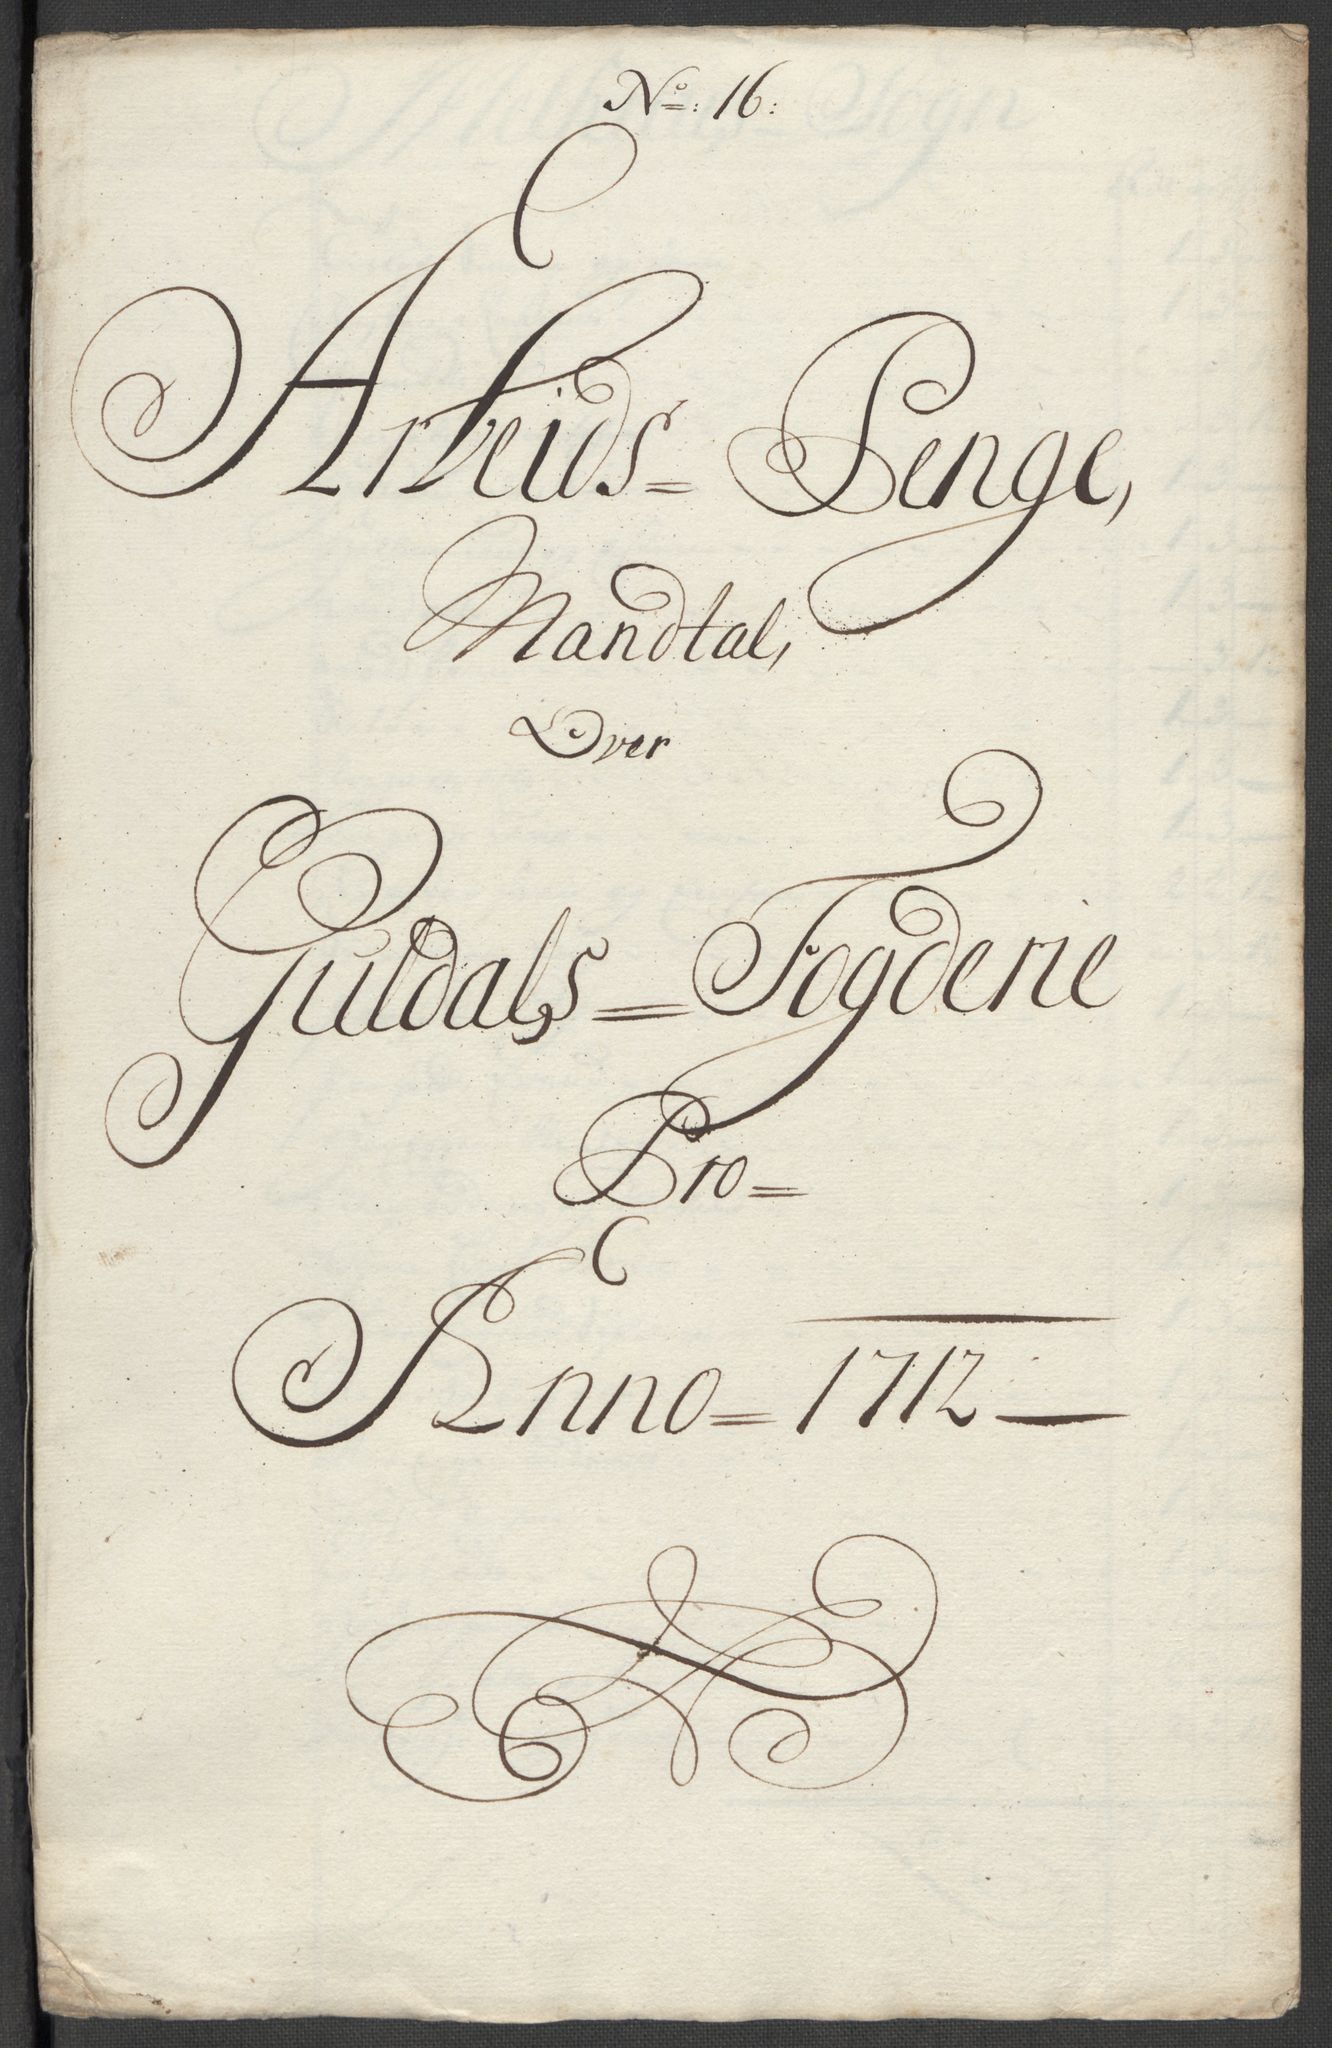 No: 16:
Arbeids= Penge,
Mandtal,
Over
Guldals= Fogderie
Pro=
Anno= 1712